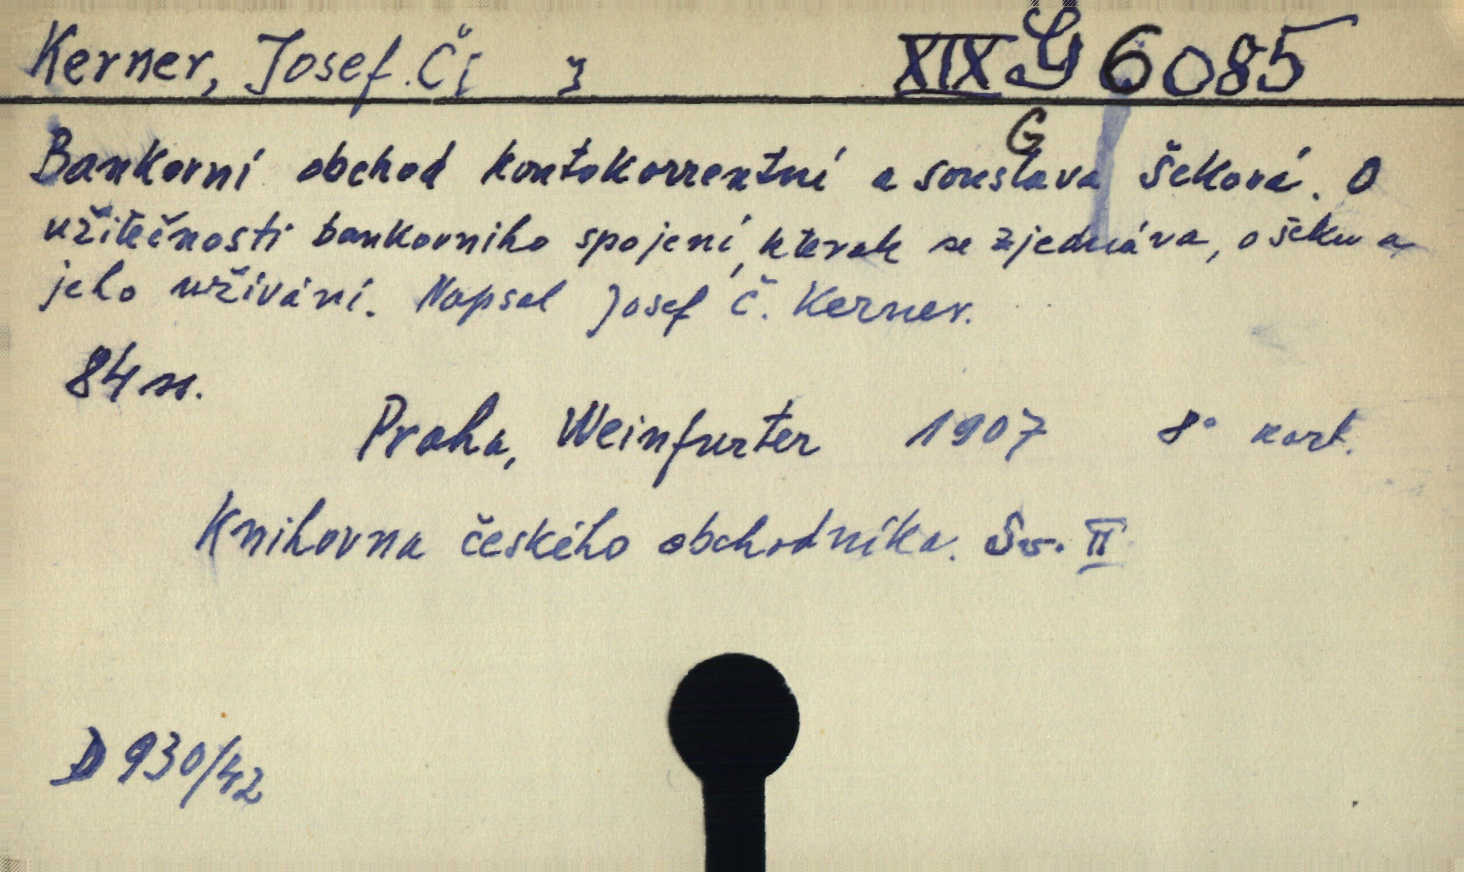 Kerner, Josef Č[ ] XIX G 6085
G
Bankovní obchod kontokorrentní a soustava šeková. O
užitečnosti bankovního spojení, kterak se zjednává, o šeku a
jeho užívání. Napsal Josef Č. Kerner.
84 s.
Praha, Weinfurter 1907 8° kart.
Knihovna českého obchodníka. Sv. II
D 930/42